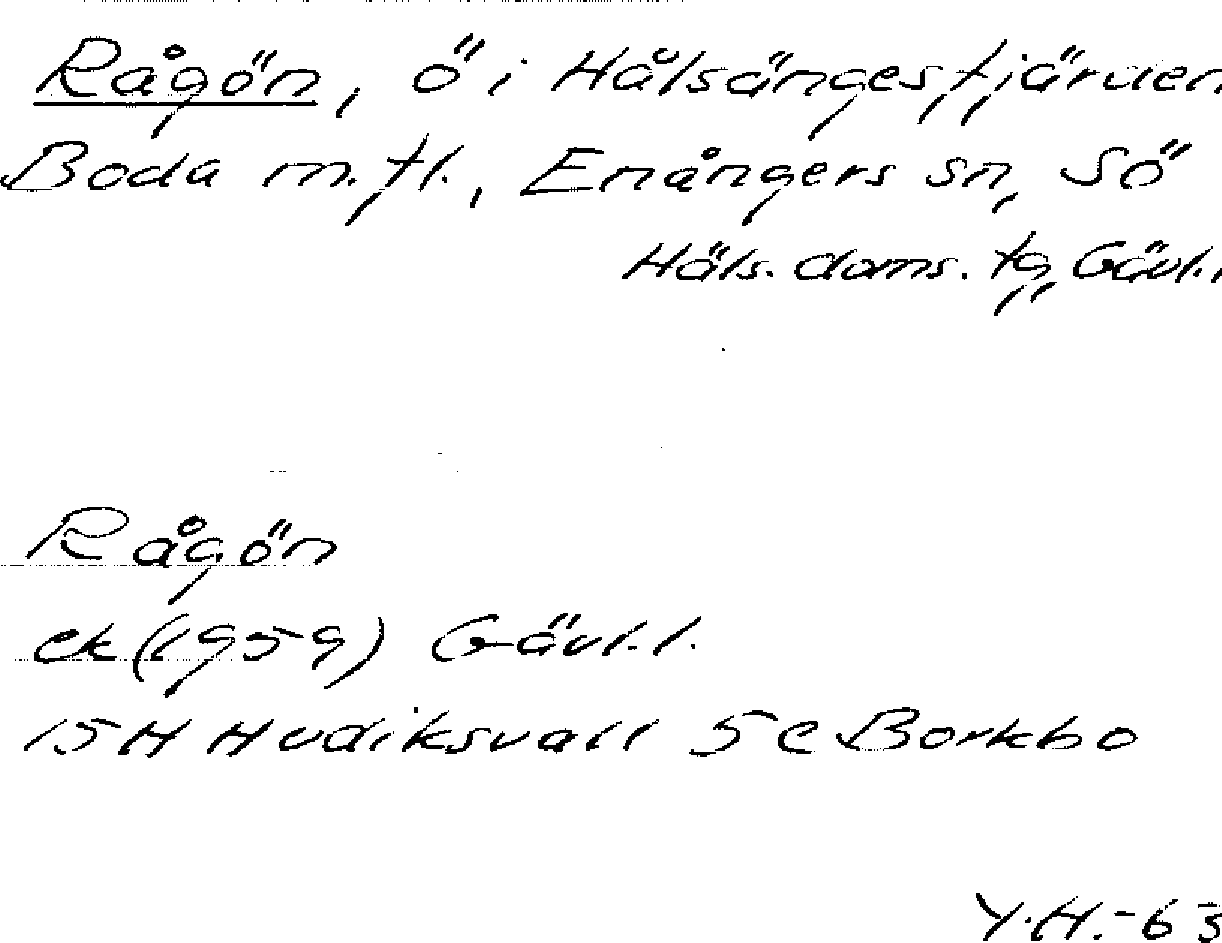 Rågön, ö i Hålsängesfjärden
Boda m.fl., Enångers sn, Sö
Häls. doms. tg, Gävl.l
Rågön
ek (1959) Gävl.l.
15H Hudiksvall 5c Borkbo
Y.H.-63